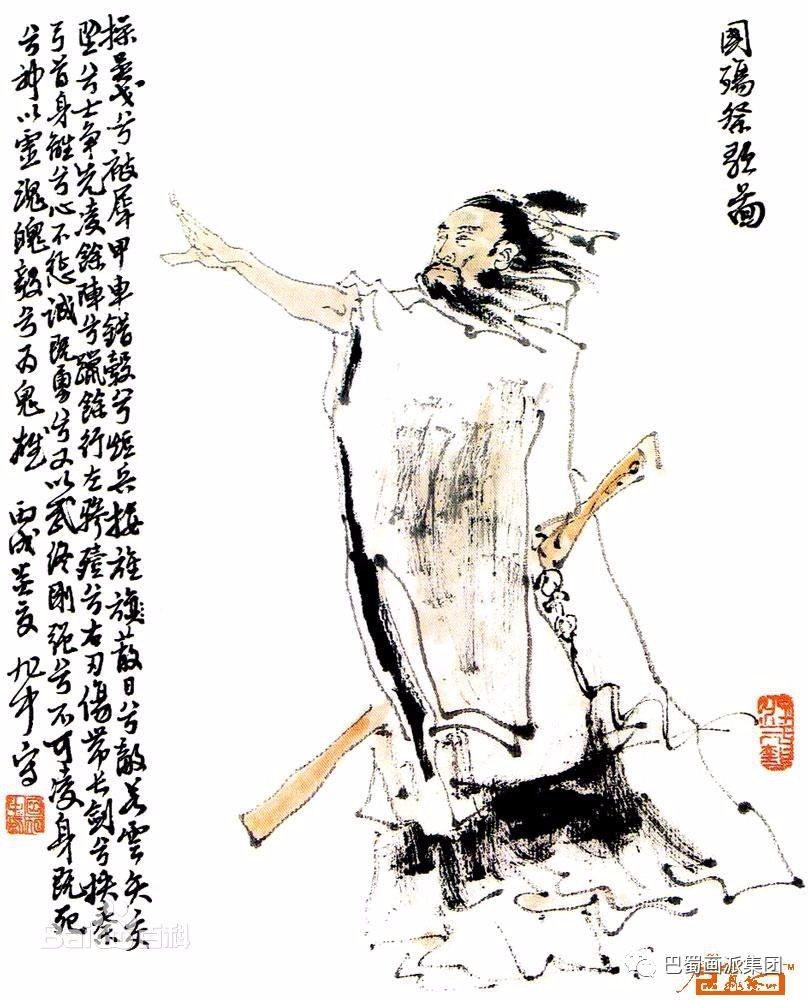 國殤祭歌圖
操吴戈兮被犀甲車錯轂兮短兵接旌旗蔽日兮敵若雲矢交
墜兮士争先凌餘陣兮躐餘行左骖殪兮右刃傷带长劍兮挟秦
弓首身離兮心不惩诚既勇兮又以武终刚强兮不可凌身既死
兮神以靈魂魄毅兮为鬼雄 丙戌炎夏 写
Bai百科
巴蜀画派集团
TM